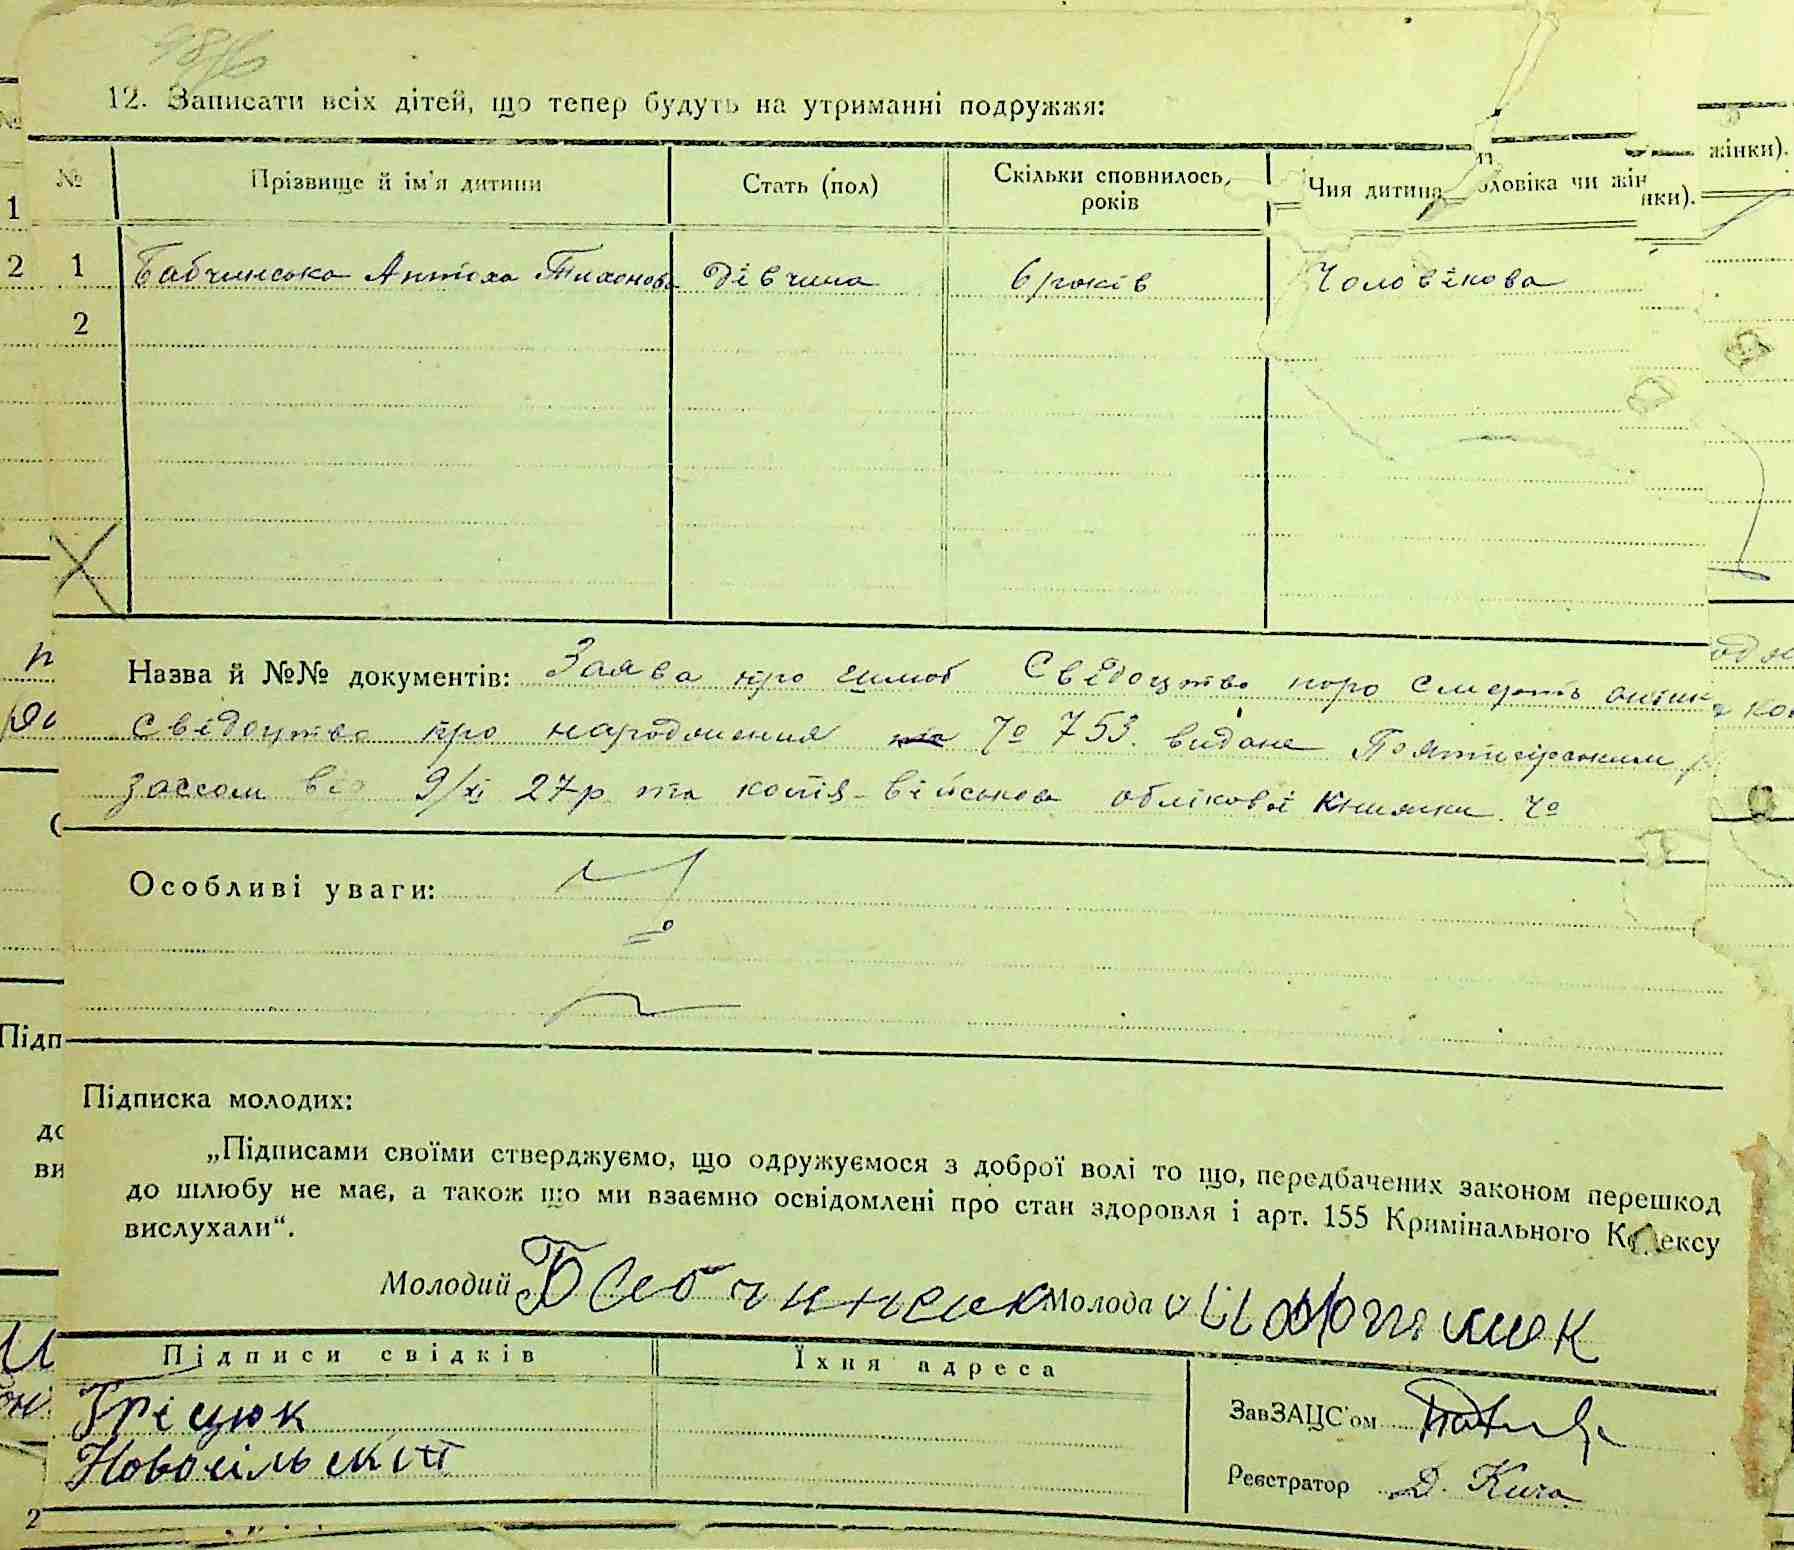 12. Записати всіх дітей, що тепер будуть на утриманні подружжя:
№ Прізвище й ім'я дитини Стать (пол) Скільки сповнилось, років Чия дитина чоловіка чи жінки).
1 Бабчинська Тихонова Дівчина 6 років Чоловікова
2
Назва й №№ документів: Заява про шлюб Свідоцтво про смерть
Свідоцтво про народження № 753 видане
від 9/XI 27р та копія військов облікової книжки №
Особливі уваги:
Підписка молодих:
„Підписами своїми стверджуємо, що одружуємося з доброї волі то що, передбачених законом перешкод
до шлюбу не має, а також що ми взаємно освідомлені про стан здоровля і арт. 155 Кримінального Кодексу
вислухали“.
Молодий Бабчинск Молода
Підписи свідків Їхня адреса
Гріцюк ЗавЗАЦС'ом
Новосільский Реєстратор Д.